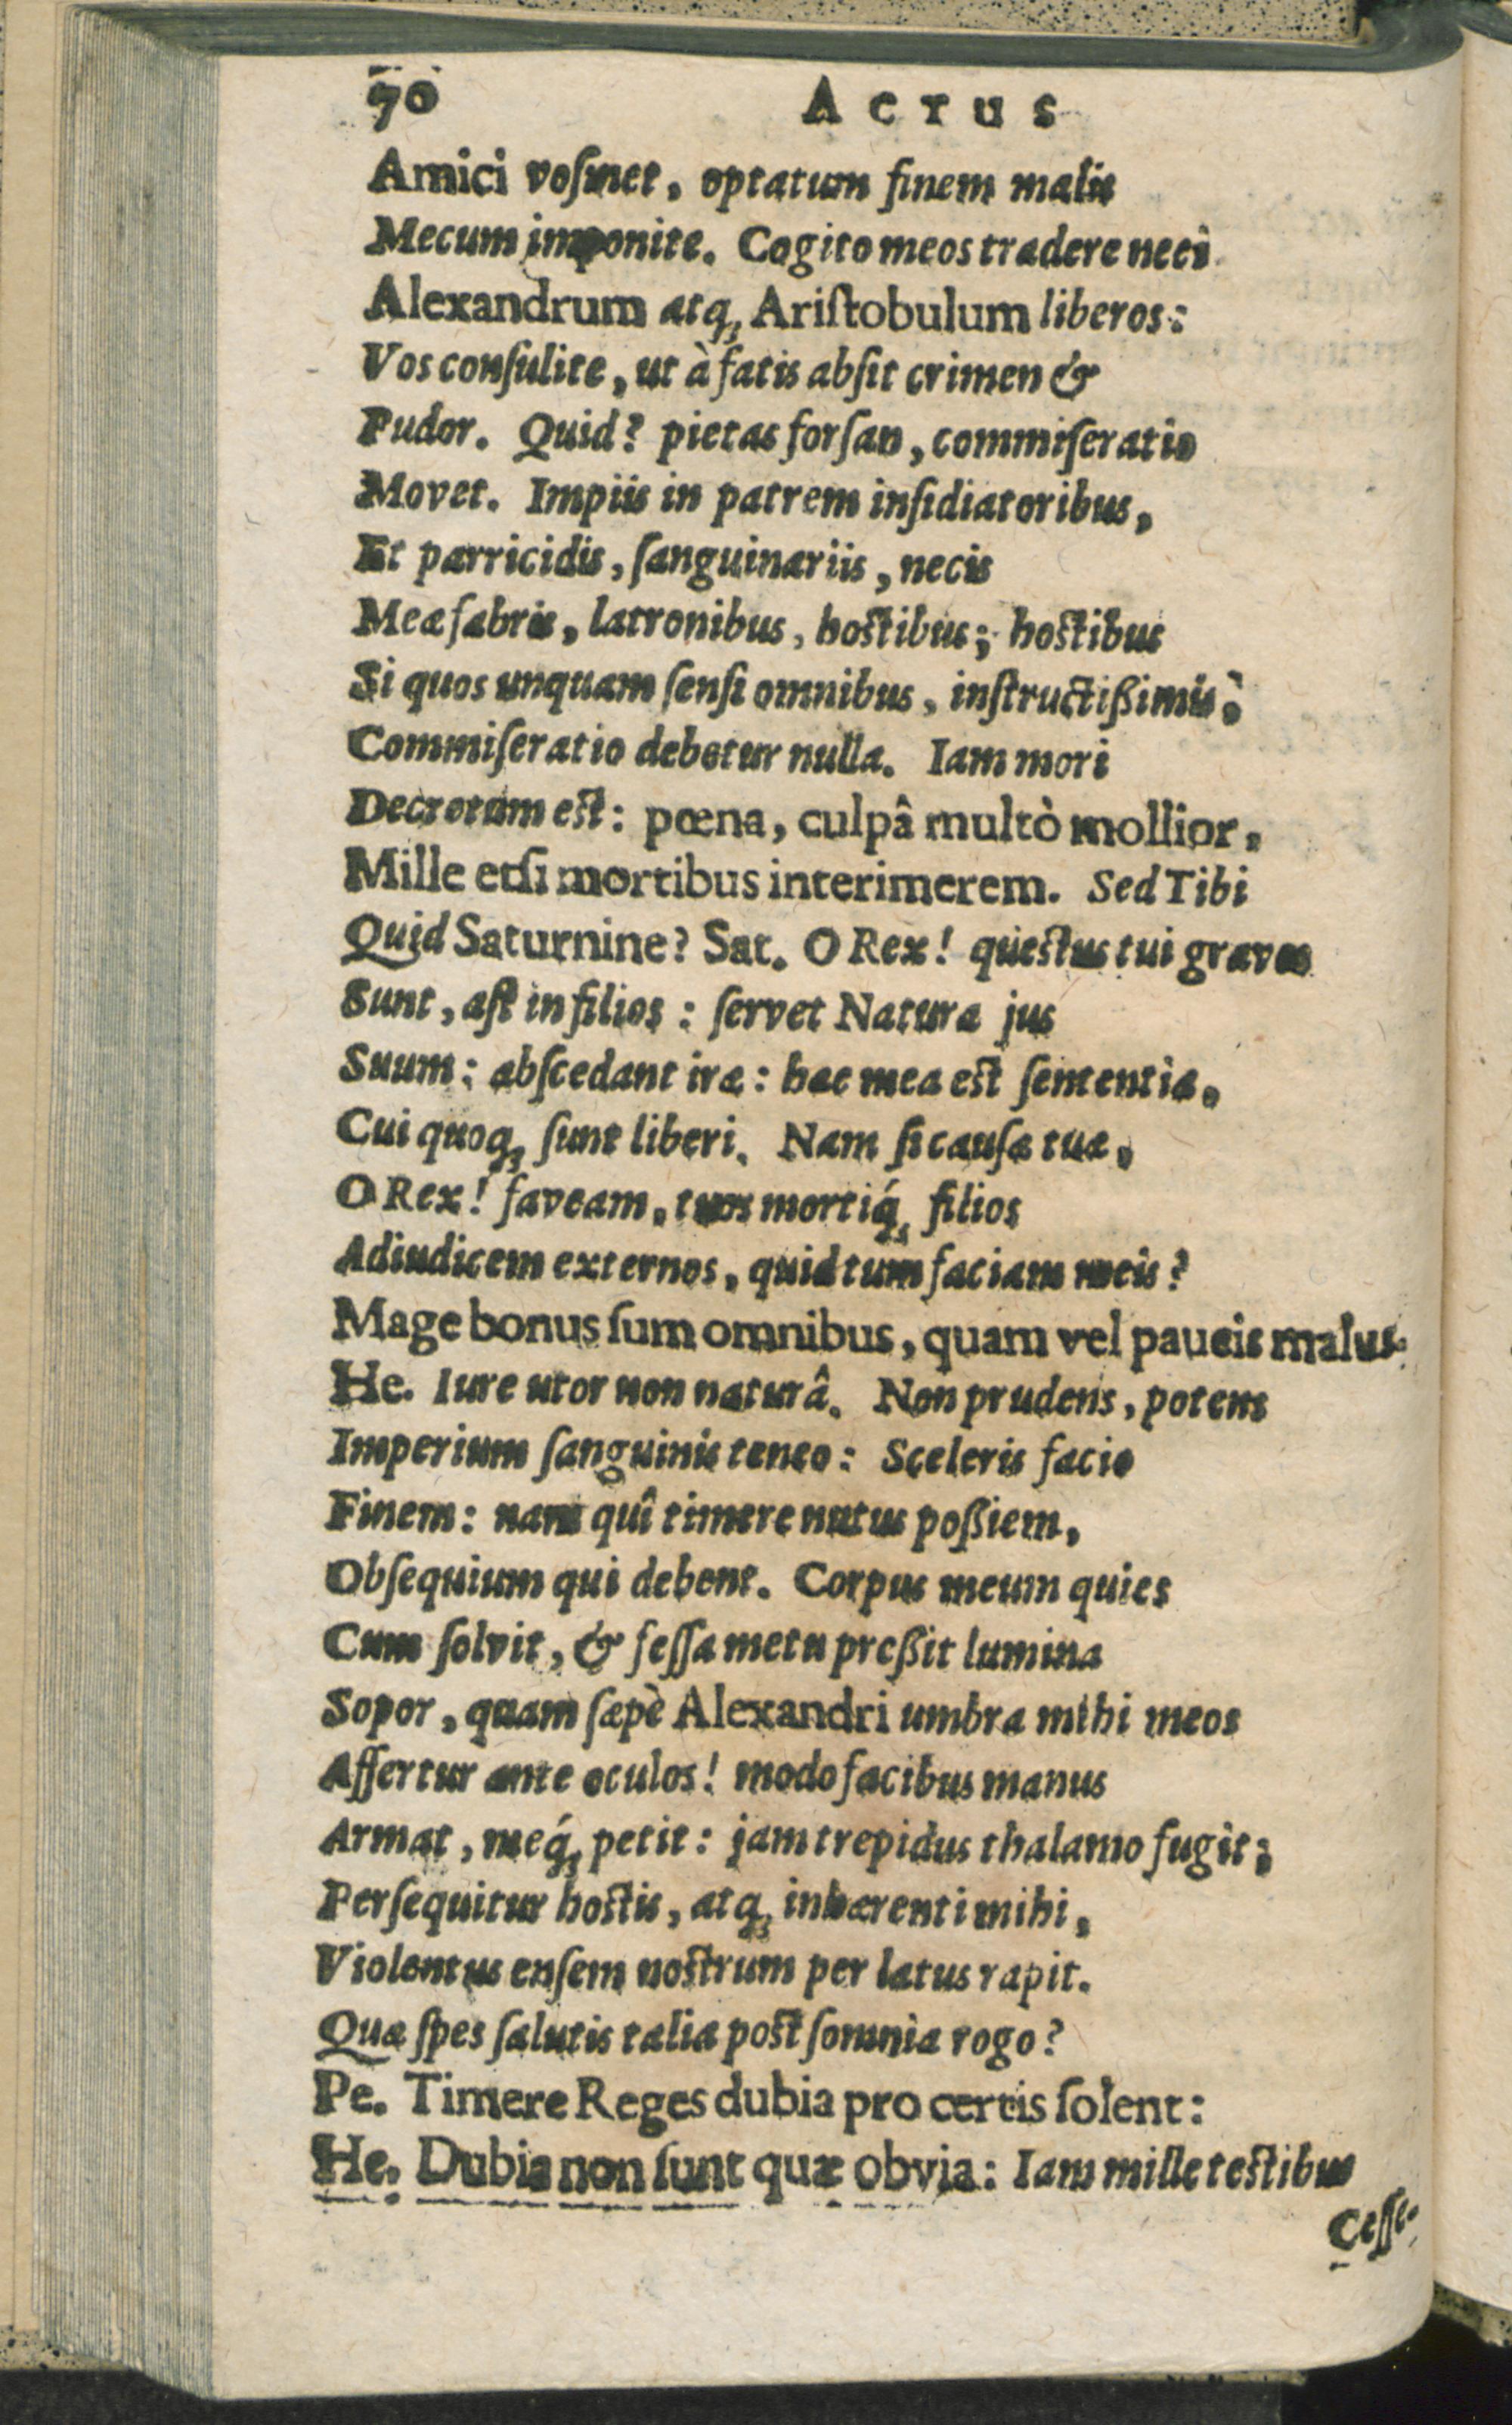 70 ACTUS
Amici voſmet, optatum finem malis
Mecum imponite. Cogito meos tradere neci
Alexandrum atq; Ariſtobulum liberos:
Vos conſulite, ut à fatis abſit crimen &
Pudor. Quid? pietas forſan, commiſeratio
Movet. Impiis in patrem inſidiatoribus,
Et parricidis, ſanguinariis, necis
Meæ fabris, latronibus, hoſtibus; hoſtibus
Si quos unquam ſenſi omnibus, inſtructißimis;
Commiſeratio debetur nulla. Iam mori
Decretum eſt: pœna, culpâ multò mollior,
Mille etſi mortibus interimerem. Sed Tibi
Quid Saturnine? Sat. O Rex! queſtus tui graves
Sunt, aſt in filios: ſervet Natura jus
Suum: abſcedant iræ: hæc mea eſt ſententia,
Cui quoq; ſunt liberi. Nam ſi cauſæ tuæ,
O Rex! faveam, tuos mortiq́; filios
Adiudicem externos, quid tum faciam meis?
Mage bonus ſum omnibus, quam vel paucis malus.
He. Iure utor non naturâ. Non prudens, potens
Imperium ſanguinis teneo: Sceleris facio
Finem: nam quî timere natus poßiem,
Obſequium qui debent. Corpus meum quies
Cum ſolvit, & feſſa metu preßit lumina
Sopor, quam ſæpè Alexandri umbra mihi meos
Affertur ante oculos! modo facibus manus
Armat, meq́; petit: jam trepidus thalamo fugit;
Perſequitur hoſtis, atq; inhærenti mihi,
Violentus enſem noſtrum per latus rapit.
Quæ ſpes ſalutis talia poſt ſomnia rogo?
Pe. Timere Reges dubia pro certis ſolent:
He. Dubia non ſunt quæ obvia: Iam mille teſtibus
Ceſſe-